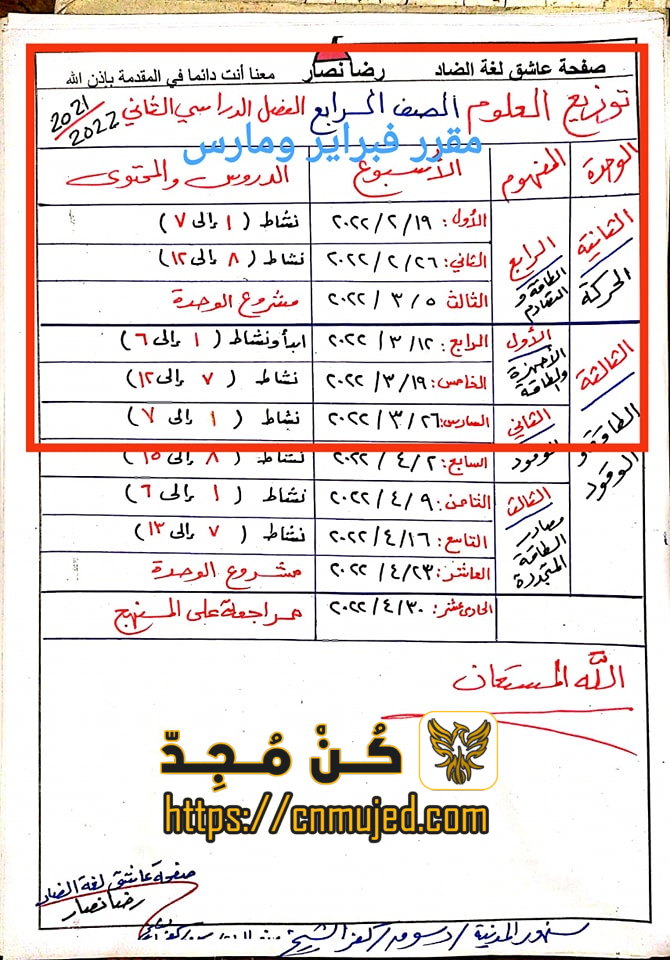 صفحة عاشق لغة الضاد رضا نصار معنا أنت دائما في المقدمة بإذن الله
توزيع العلوم الصف الرابع الفصل الدراسي الثاني 2021/2022
مقرر فبراير ومارس
الوحدة المفهوم الأسبوع الدروس والمحتوى
الثانية الحركة
الرابع الطاقة و التصادم
الأول: ٢٠٢٢/٢/١٩ نشاط (١ إلى ٧)
الثاني: ٢٠٢٢/٢/٢٦ نشاط (٨ إلى ١٢)
الثالث ٢٠٢٢/٣/٥ مشروع الوحدة
الثالثة الطاقة و الوقود
الأول الأجهزة والطاقة
الرابع: ٢٠٢٢/٣/١٢ ابدأ ونشاط (١ إلى ٦)
الخامس: ٢٠٢٢/٣/١٩ نشاط (٧ إلى ١٢)
الثاني الوقود
السادس: ٢٠٢٢/٣/٢٦ نشاط (١ إلى ٧)
السابع: ٢٠٢٢/٤/٢ نشاط (٨ إلى ١٥)
الثالث مصادر الطاقة المتجددة
الثامن: ٢٠٢٢/٤/٩ نشاط (١ إلى ٦)
التاسع: ٢٠٢٢/٤/١٦ نشاط (٧ إلى ١٣)
العاشر: ٢٠٢٢/٤/٢٣ مشروع الوحدة
الحادى عشر: ٢٠٢٢/٤/٣٠ مراجعة على المنهج
الله المستعان
كُنْ مُجِدّ
https://cnmujed.com
صفحة عاشق لغة الضاد
رضا نصار
سنهور المدينة / دسوق / كفر الشيخ